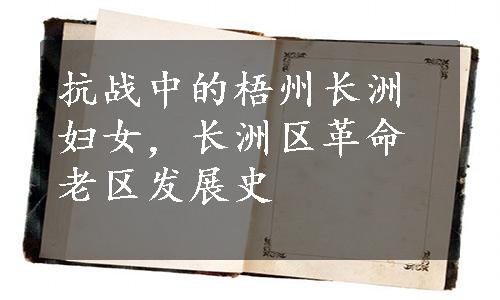 抗战中的梧州长洲
妇女，长洲区革命
老区发展史